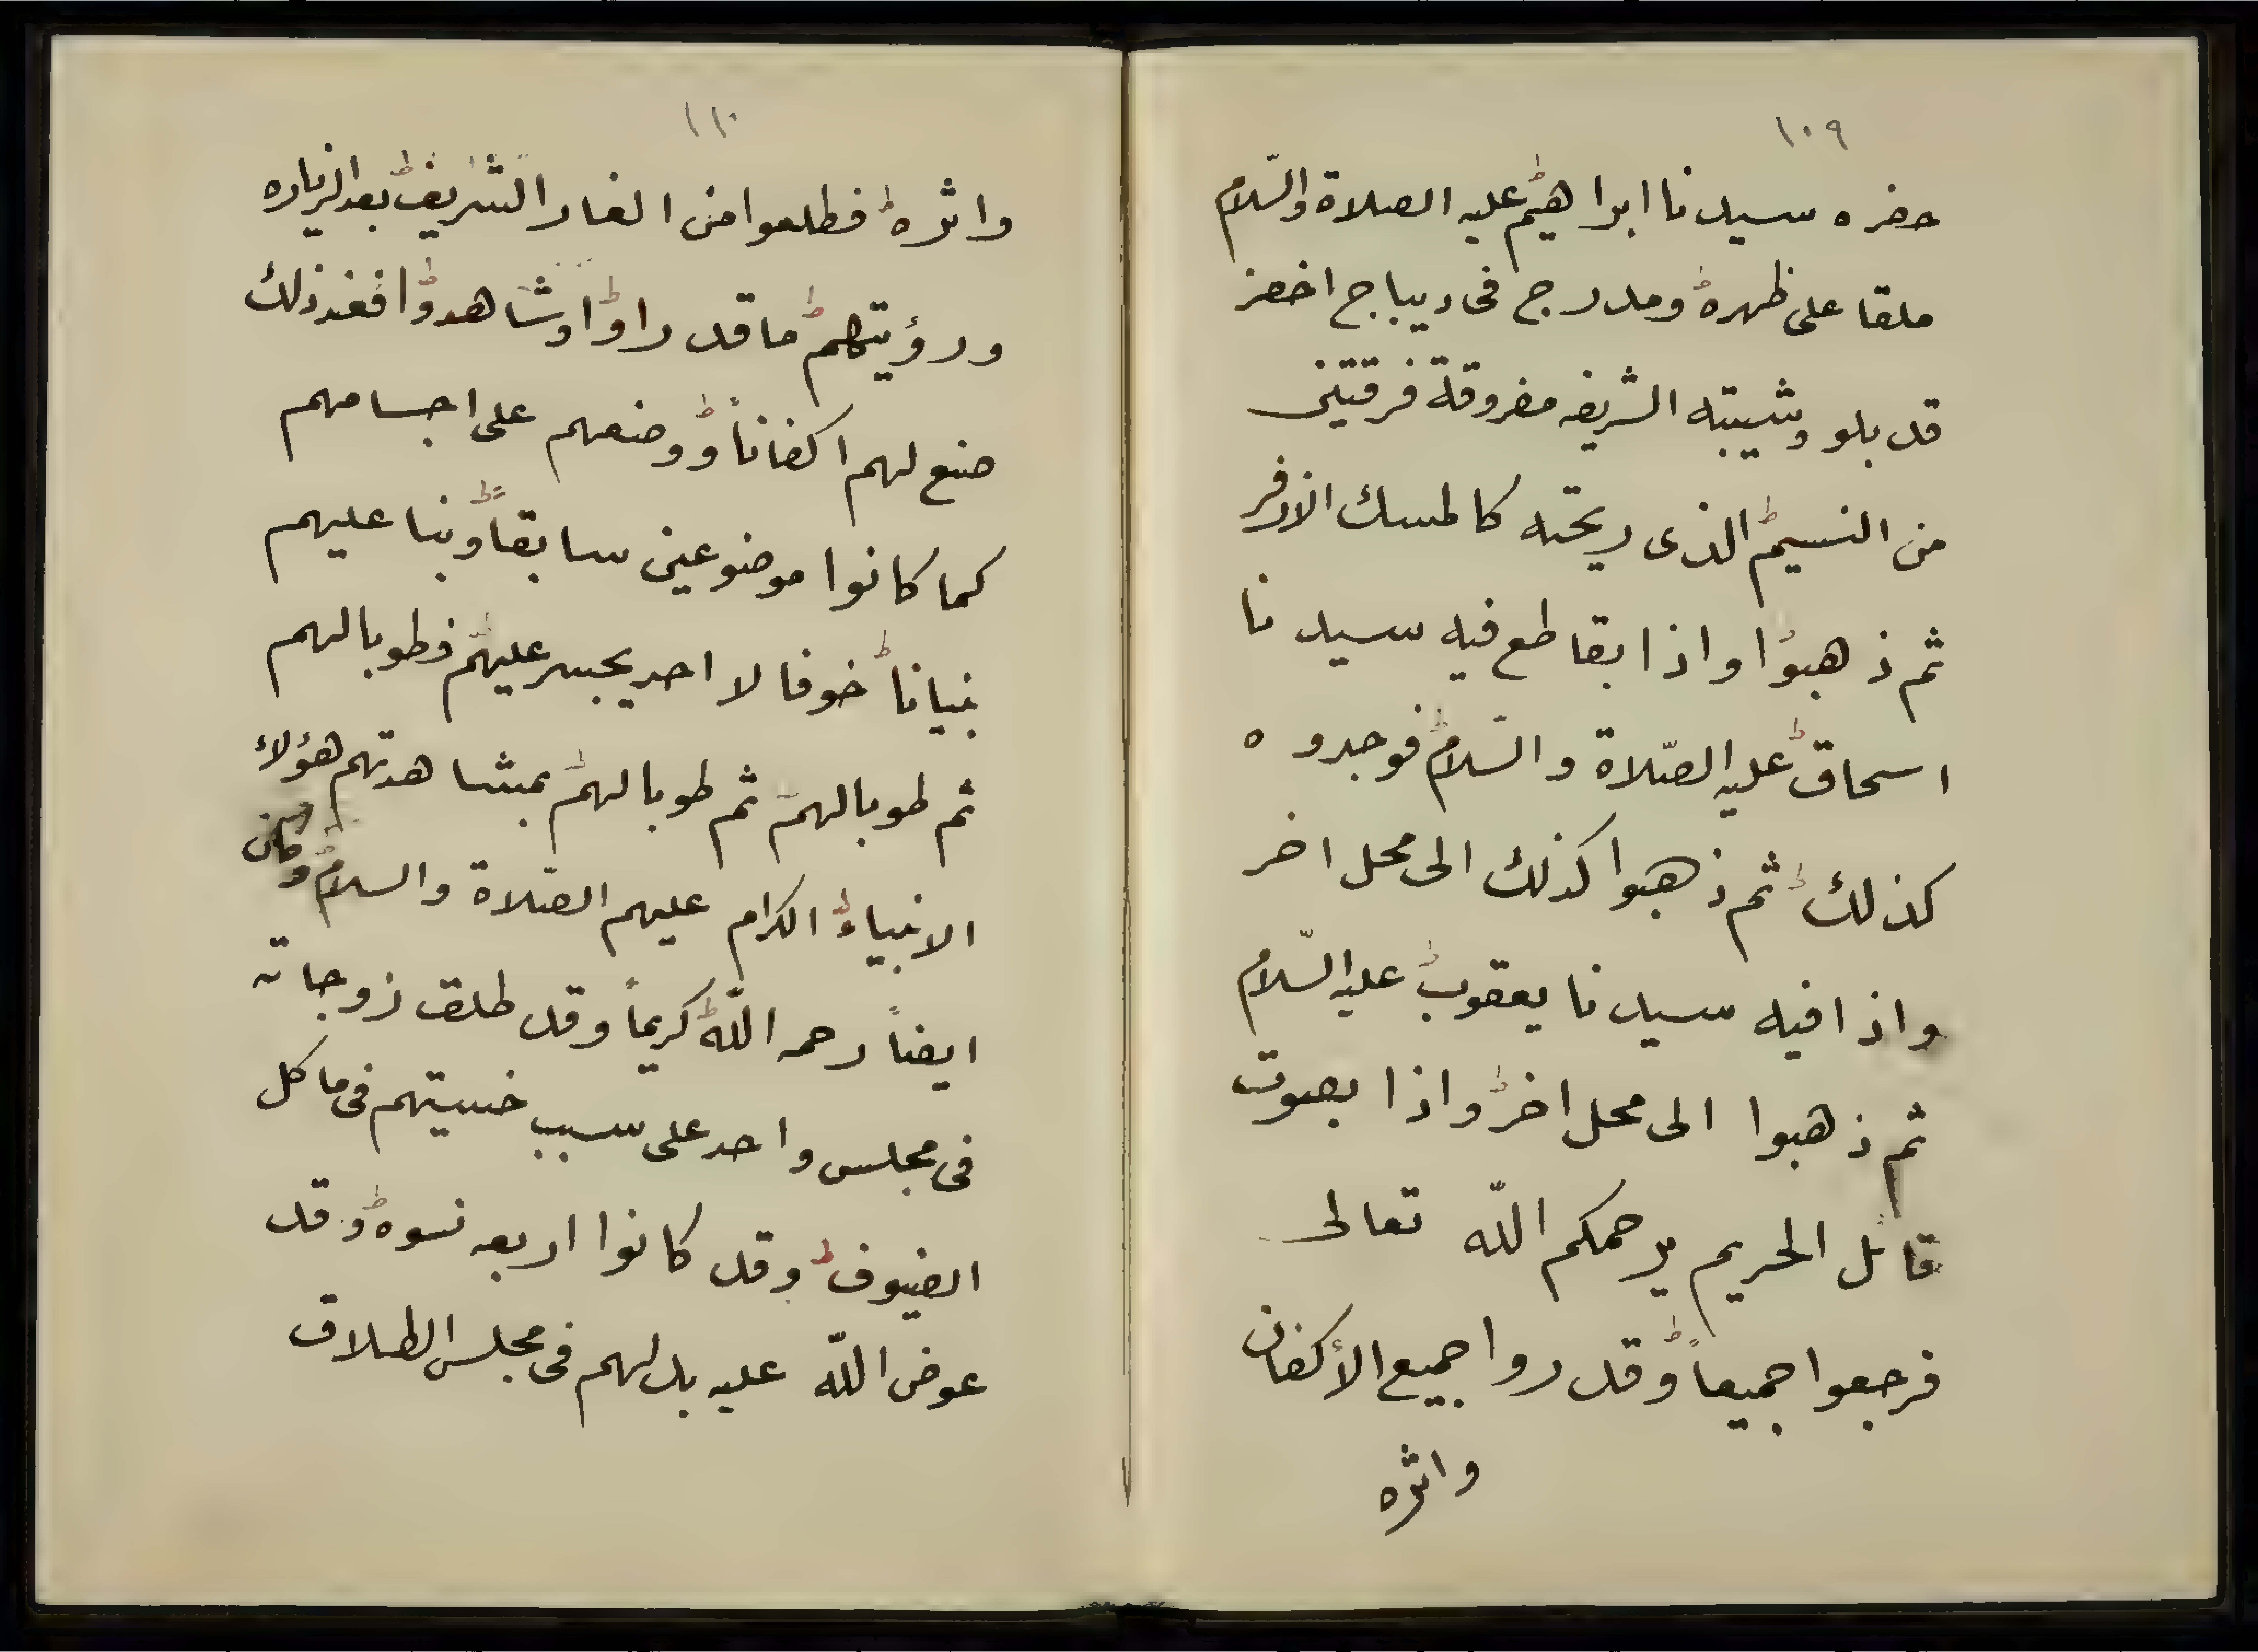 ١٠٩
حضره سيدنا ابراهيم عليه الصلاة والسّلام
ملقا على ظهره ومدرج فى ديباج اخضر
قد بلو وشيبته الشريفه مفروقة فرقتين
من النسيم الذى ريحته كالمسك الاذفر
ثم ذهبوا واذا بقاطع فيه سيدنا
اسحاق عليه الصّلاة والسّلام فوجدوه
كذلك ثم ذهبوا كذلك الى محل اخر
واذا فيه سيدنا يعقوب عليه السّلام
ثم ذهبوا الى محل اخر واذا بصوت
قائل الحريم يرحمكم اللّه تعالى
فرجعوا جميعاً وقد روا جميع الأكفان
واثره
١١٠
واثره فطلعوا من الغار الشريف بعد الزياره
ورؤيتهم ما قد راوا وشاهدوا فعند ذلك
صنع لهم اكفاناً ووضعهم على اجسامهم
كما كانوا موضوعين سابقاً وبنا عليهم
بنياناً خوفا لا احد يجسر عليهم فطوبا لهم
ثم طوبا لهم ثم طوبا لهم بمشاهدتهم هؤلاء
الانبياء الكرام عليهم الصّلاة والسلام وكان
ايضاً رحمه اللّه كريماً وقد طلق زوجاته
فى مجلس واحد على سبب خسيتهم فى ماكل
الضيوف وقد كانوا اربعه نسوه وقد
عوض اللّه عليه بدلهم فى مجلس الطلاق